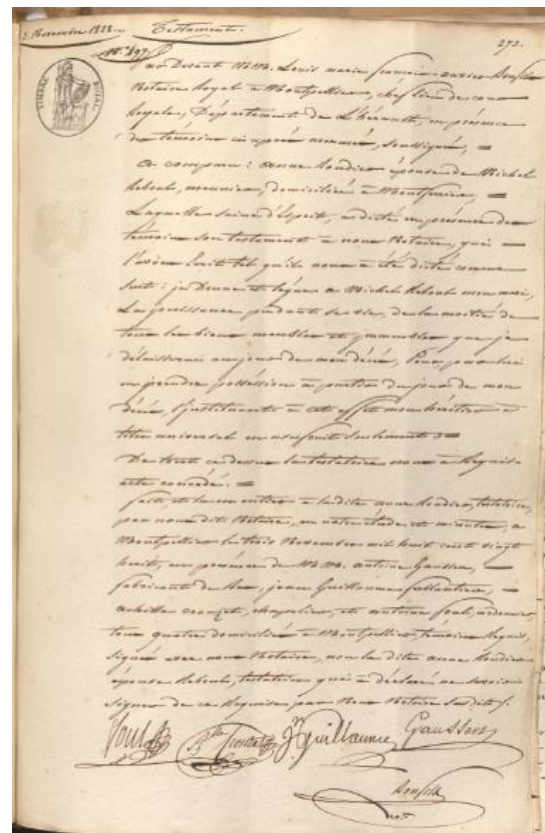 3. Novembre 1828.
Testament.
N.° 497.
273.
TIMBRE ROYAL
Par Devant M. M. Louis marie françois xavier
Notaire Royal à Montpellier, chef lieu de cour
Royale, Département de L'hérault, en présence
des témoins ci après nommés, soussignés,
a comparu: anne épouse de Michel
Reboul, meunier, domiciliée à
Laquelle saine d'Esprit, a dicté en présence des
témoins son testament à nous Notaire, qui
l'avons Ecrit tel qu'il nous a été dicté comme
suit: je Donne et lègue à Michel Reboul mon mari,
La jouissance pendant sa vie, de la moitié de
tous les biens meubles et immeubles que je
délaisserai au jour de mon décès, Pour par lui
en prendre possession à partir du jour de mon
décès, l'instituant à cet effet mon héritier à
titre universel en usufruit seulement
De tout ce dessus la testatrice nous a Requis
acte concédé:
fait et lu en entier à la dite anne testatrice,
par nous dit Notaire, en notre étude et minutes, à
Montpellier le trois Novembre mil huit cent vingt
huit, en présence de M. M. antoine Gaussen,
fabricant de jean Guillaume
achille chapelier, et antoine
tous quatre domiciliés à Montpellier, témoins Requis,
signés avec nous Notaire, non la dite anne
épouse Reboul, testatrice qui a déclaré ne savoir
signer de ce Requise, par Nous Notaire Susdit.
Jn Guillaume Gaussen
not.